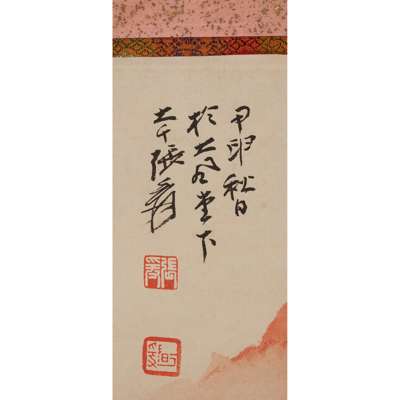 甲卯秋日
於大風堂下
大千張爰
張爰